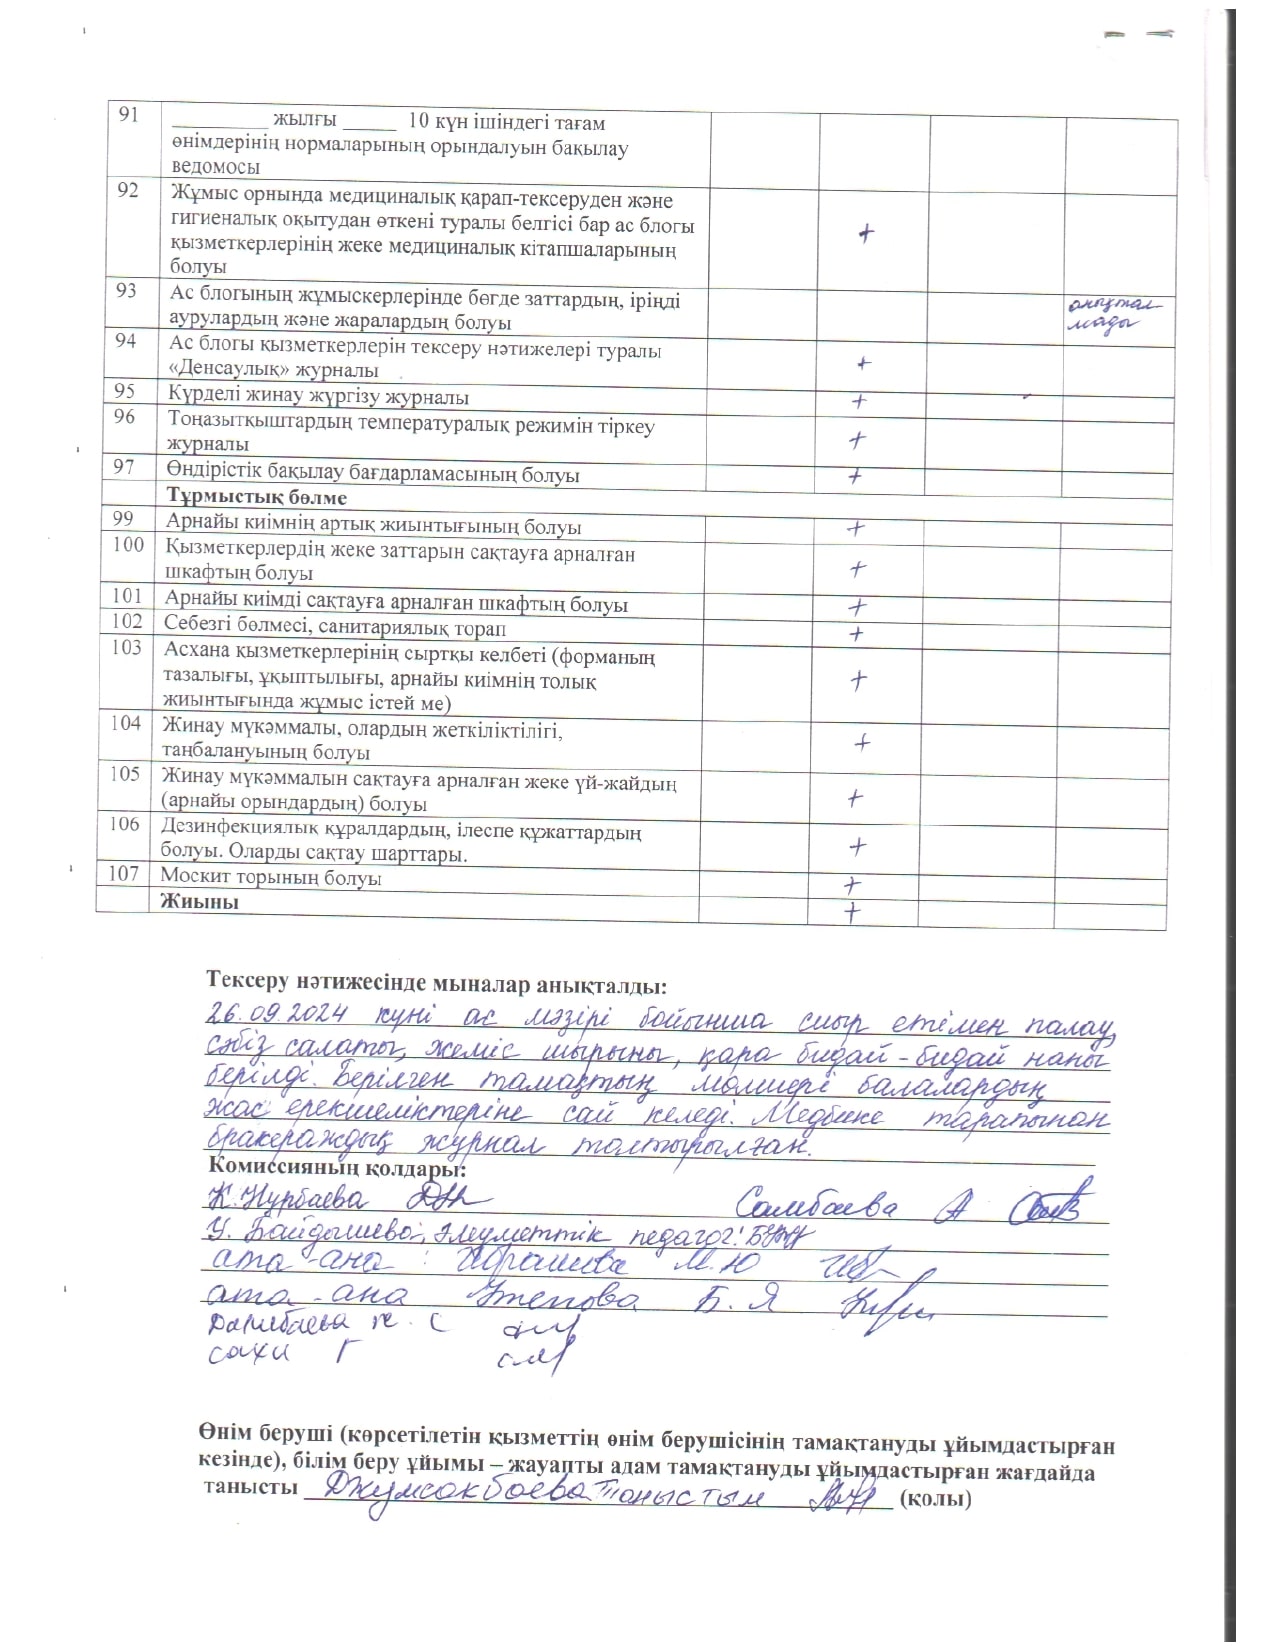 91 _________ жылғы _____ 10 күн ішіндегі тағам
өнімдерінің нормаларының орындалуын бақылау
ведомосы
92 Жұмыс орнында медициналық қарап-тексеруден және
гигиеналық оқытудан өткені туралы белгісі бар ас блогы
қызметкерлерінің жеке медициналық кітапшаларының +
болуы
93 Ас блогының жұмыскерлерінде бөгде заттардың, іріңді анықтал
аурулардың және жаралардың болуы мады
94 Ас блогы қызметкерлерін тексеру нәтижелері туралы
«Денсаулық» журналы +
95 Күрделі жинау жүргізу журналы +
96 Тоңазытқыштардың температуралық режимін тіркеу
журналы +
97 Өндірістік бақылау бағдарламасының болуы +
Тұрмыстық бөлме
99 Арнайы киімнің артық жиынтығының болуы +
100 Қызметкерлердің жеке заттарын сақтауға арналған
шкафтың болуы +
101 Арнайы киімді сақтауға арналған шкафтың болуы +
102 Себезгі бөлмесі, санитариялық торап +
103 Асхана қызметкерлерінің сыртқы келбеті (форманың
тазалығы, ұқыптылығы, арнайы киімнің толық +
жиынтығында жұмыс істей ме)
104 Жинау мүкәммалы, олардың жеткіліктілігі,
таңбалануының болуы +
105 Жинау мүкәммалын сақтауға арналған жеке үй-жайдың
(арнайы орындардың) болуы +
106 Дезинфекциялық құралдардың, ілеспе құжаттардың
болуы. Оларды сақтау шарттары. +
107 Москит торының болуы +
Жиыны +
Тексеру нәтижесінде мыналар анықталды:
26.09.2024 күні ас мәзірі бойынша сиыр етімен палау,
сәбіз салаты, жеміс шырыны, қара бидай - бидай наны
берілді. Берілген тамақтың мөлшері балалардың
жас ерекшеліктеріне сай келеді. Медбике тарапынан
бракераждық журнал толтырылған.
Комиссияның қолдары:
К. Нурбаева Самбаева А
У. Байдашева, әлеуметтік педагог:
ата-ана : Ибрашева М.Ю
ата-ана Утепова Б. Я
Даримбаева Ж. С
сахи Г
Өнім беруші (көрсетілетін қызметтің өнім берушісінің тамақтануды ұйымдастырған
кезінде), білім беру ұйымы – жауапты адам тамақтануды ұйымдастырған жағдайда
танысты Джумсакбаева Таныстым (қолы)